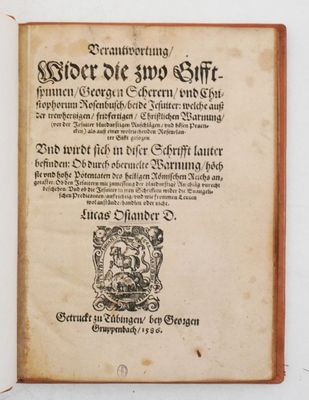 Verantwortung/
Wider die zwo Gifft-
spinnen/ Georgen Scherern/ vnd Chri-
stophorum Rosenbusch/ beide Jesuiter: welche auß
der trewhertzigen/ fridfertigen/ Christlichen Warnung/
(vor der Jesuiter blutdurstigen Anschlägen/ vnd bösen Prac-
cken) als auß einer wolriechenden Rosen/ lau-
ter Gifft gesogen.
Vnd würdt sich in diser Schrifft lauter
befinden: Ob durch obermelte Warnung/ höch
ste vnd hohe Potentaten des heiligen Römischen Reichs an-
getastet. Ob den Jesuitern mit zumessung der blutdurstige Anschläg vnrecht
beschehen. Vnd ob die Jesuiter in jren Schrifften wider die Euangeli-
schen Predicanten/ auffrichtig/ vnd wie frommen Leuten
wol anstünde/ handlen oder nicht.
Lucas Osiander D.
Getruckt zu Tübingen/ bey Georgen
Gruppenbach/ 1586.